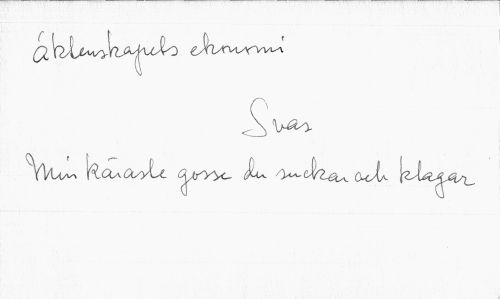 Äktenskapets ekonomi
Svar
Min käraste gosse du suckar och klagar